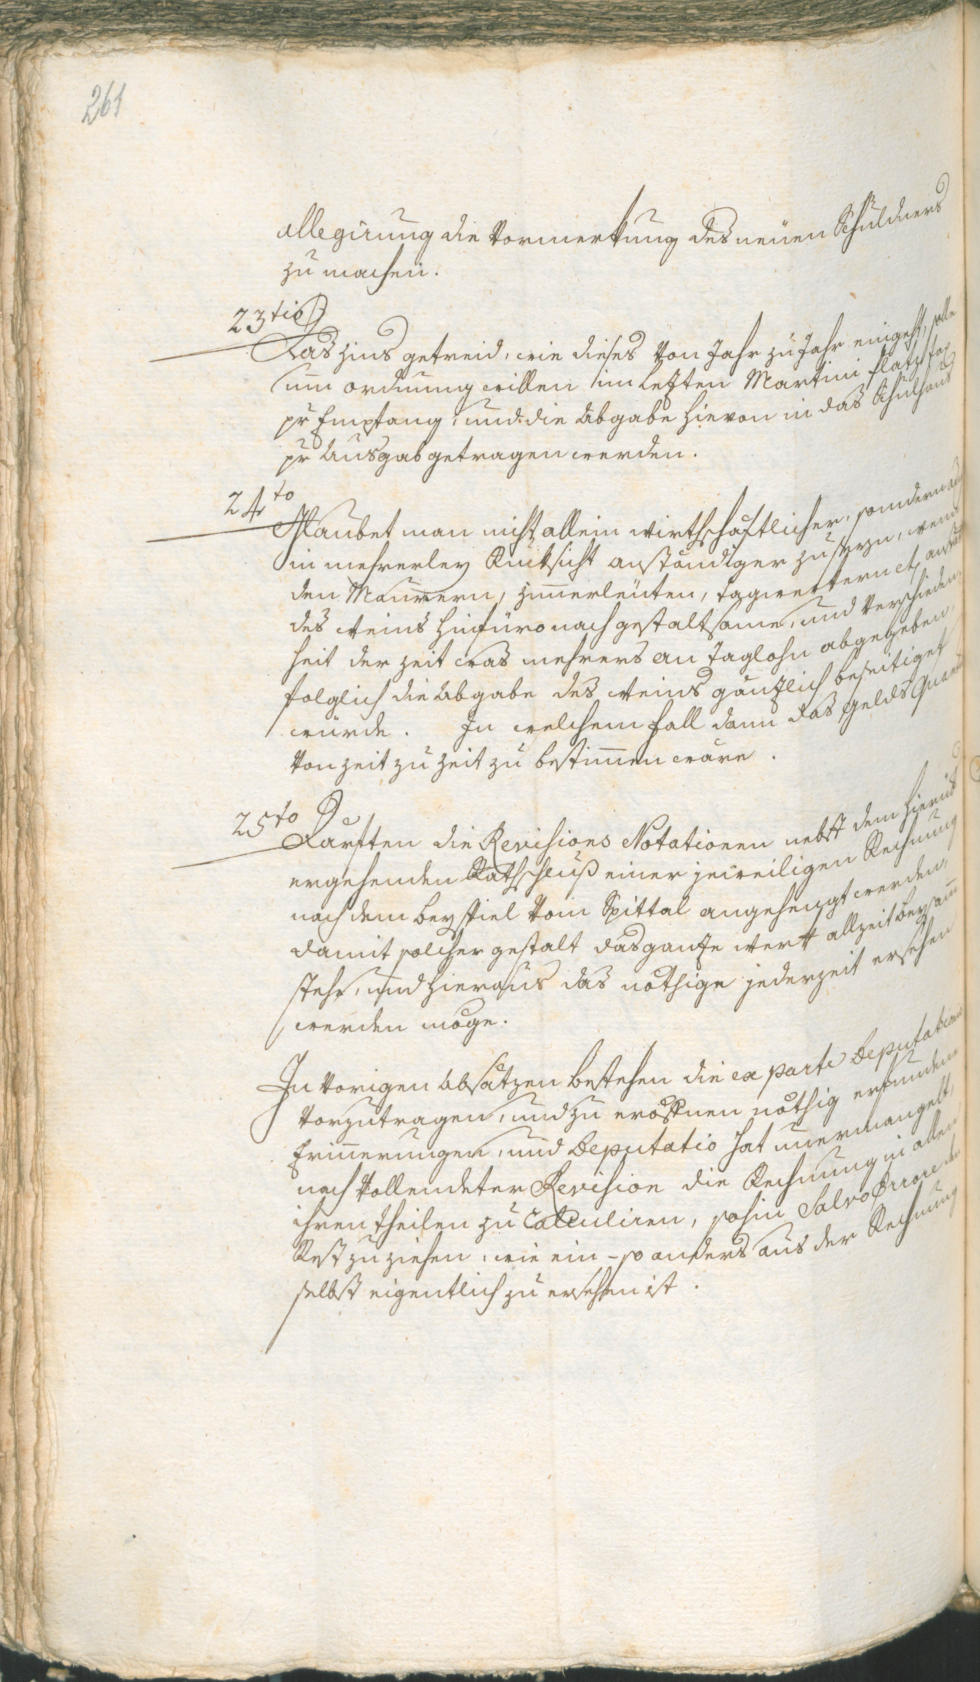 261
allegirung die Vormerkung des neüen Schuldners
zu machen.
23tio
Das Zins getreid, wie dieses Von Jahr zu Jahr eingeht, solle
um ordnung willen im Letzten Martini
pr Empfang, und die Abgabe hievon in das Schulhaus
pr Ausgab getragen werden.
24to
Glaubet man nicht allein wirthschaftlicher, sondern
in mehrerley Rücksicht anständiger zu seyn, wenn
den Maurern, Zimerleüten, tagwerkern etc anstatt
des Weins hinfüro nach gestaltsame, und Verschieden
heit der Zeit was mehrers an Taglohn abgegeben,
folglich die Abgabe des Weins gänzlich beseitiget
würde. In welchem fall dann das Gelds Quantum
Von Zeit zu Zeit zu bestimen wäre.
25to
Darften die Revisions Notationen nebst dem hierüber
ergehenden Rathschluß einer jeweiligen Rechnung
nach dem beyspiel Vom Spittal angehengt werden,
damit solcher gestalt das ganze Werk allzeit beysam
stehe, und hieraus das nöthige jederzeit ersehen
werden möge.
In Vorigen Absätzen bestehen die ex parte Deputationis
Vorzutragen, und zu eröfnen nöthig erfundene
Erinerungen, und Deputatio hat unermangelt,
nach Vollendeter Revision die Rechnung in allen
ihren theilen zu Calculiren, sohin Salvo Errore den
Rest zu ziehen, wie ein- so anders aus der Rechnung
selbst eigentlich zu ersehen ist.